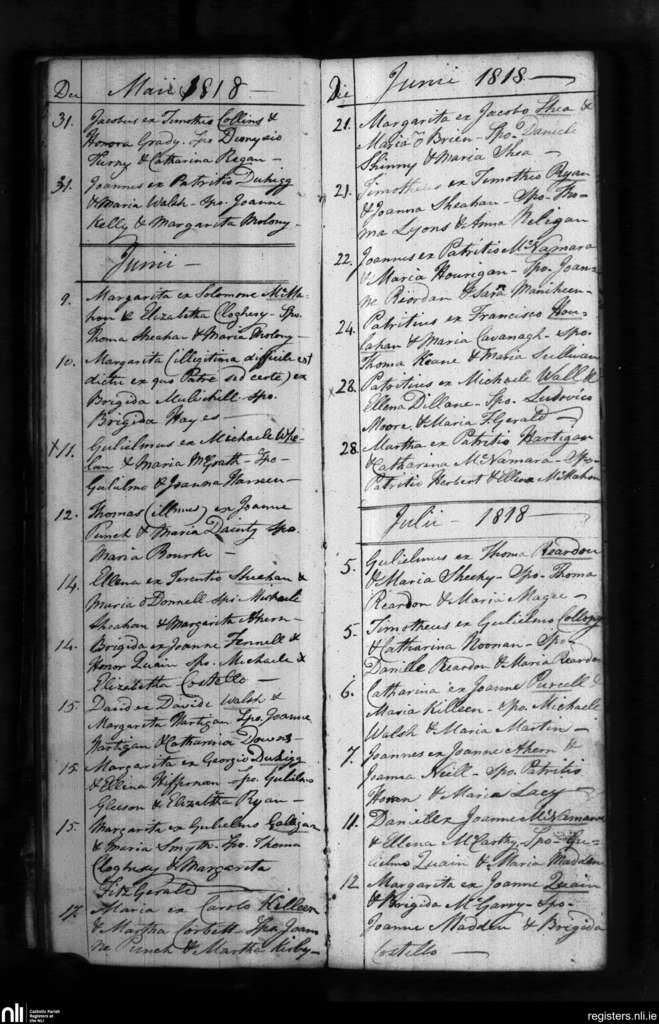 Die Maii 1818 —
31. Jacobus ex Timotheo Collins &
Honora Grady. Spo Dionysio
& Catharina Regan —
31. Joannes ex Patritio Duhigg
& Maria Walsh - Spo. Joanne
Kelly & Margarita Molony -
Junii —
9. Margarita ex Solomone McMa-
hon & Elizabetha Cloghesy - Spo.
Thoma Sheahan & Maria Molony -
10. Margarita (illegitima difficile est
dictu ex quo Patre sed certe) ex
Brigida Mulichill spo.
Brigida Hayes —
11. Gulielmus ex Michaele Whe-
lan & Maria McGrath - Spo-
Gulielmo & Joanna
12. Thomas (illmus) ex Joanne
Punch & Maria Dainty Spo.
Maria Bourke —
14. Ellena ex Terentio Sheehan &
Maria O Donnell - Spo. Michaele
Sheahan & Margarita Ahern -
14. Brigida ex Joanne Fennell &
Honor Quain Spo. Michaele &
Elizabetha Costello —
15. David ex Davide Walsh &
Margarita Hartigan Spo. Joanne
Hartigan & Catharina Downs -
15. Margarita ex Georgio Duhigg
& Ellena Heffernan - Spo. Gulielmo
Gleeson & Elizabetha Ryan —
15. Margarita ex Gulielmo
& Maria Smyth - Spo. Thoma
Cloghesy & Margarita
FitzGerald —
17. Maria ex Carolo Killeen
& Martha Corbett - Spo. Joan-
ne Punch & Martha Kirby -
Die Junii 1818 —
21. Margarita ex Jacobo Shea &
Maria O Brien - Spo. Daniele
Shinny & Maria Shea —
21. Timotheus ex Timotheo Ryan
& Joanna Sheahan - Spo - Tho-
ma Lyons & Anna Nelegan
22. Joannes ex Patritio McNamara
& Maria Hourigan - Spo. Joan-
ne Reordan & Sara
24. Patritius ex Francisco Hou-
lahan & Maria Cavanagh - Spo.
Thoma Keane & Maria Sullivan
28. Patritius ex Michaele Wall &
Ellena Dillane - Spo. Ludovico
Moore & Maria F.Gerald —
28. Martha ex Patritio Hartigan
& Catharina McNamara - Spo-
Patritio Herbert & Ellena McMahon
Julii - 1818 —
5. Gulielmus ex Thoma Reardon
& Maria Sheehy - Spo - Thoma
Reardon & Maria Magee —
5. Timotheus ex Gulielmo Collopy
& Catharina Noonan - Spo-
Daniele Reardon & Maria Reardon
6. Catharina ex Joanne Purcell &
Maria Killeen - Spo. Michaele
Walsh & Maria Martin —
7. Joannes ex Joanne Ahern &
Joanna Neill - Spo. Patritio
Horan & Maria Lacy —
11. Daniel ex Joanne McNamara
& Ellena McCarthy - Spo - Gu-
lielmo Quain & Maria Madden
12. Margarita ex Joanne Quain
& Brigida McGarry - Spo-
Joanne Madden & Brigida
Costello —
nli Catholic Parish
Registers at
the NLI
registers.nli.ie